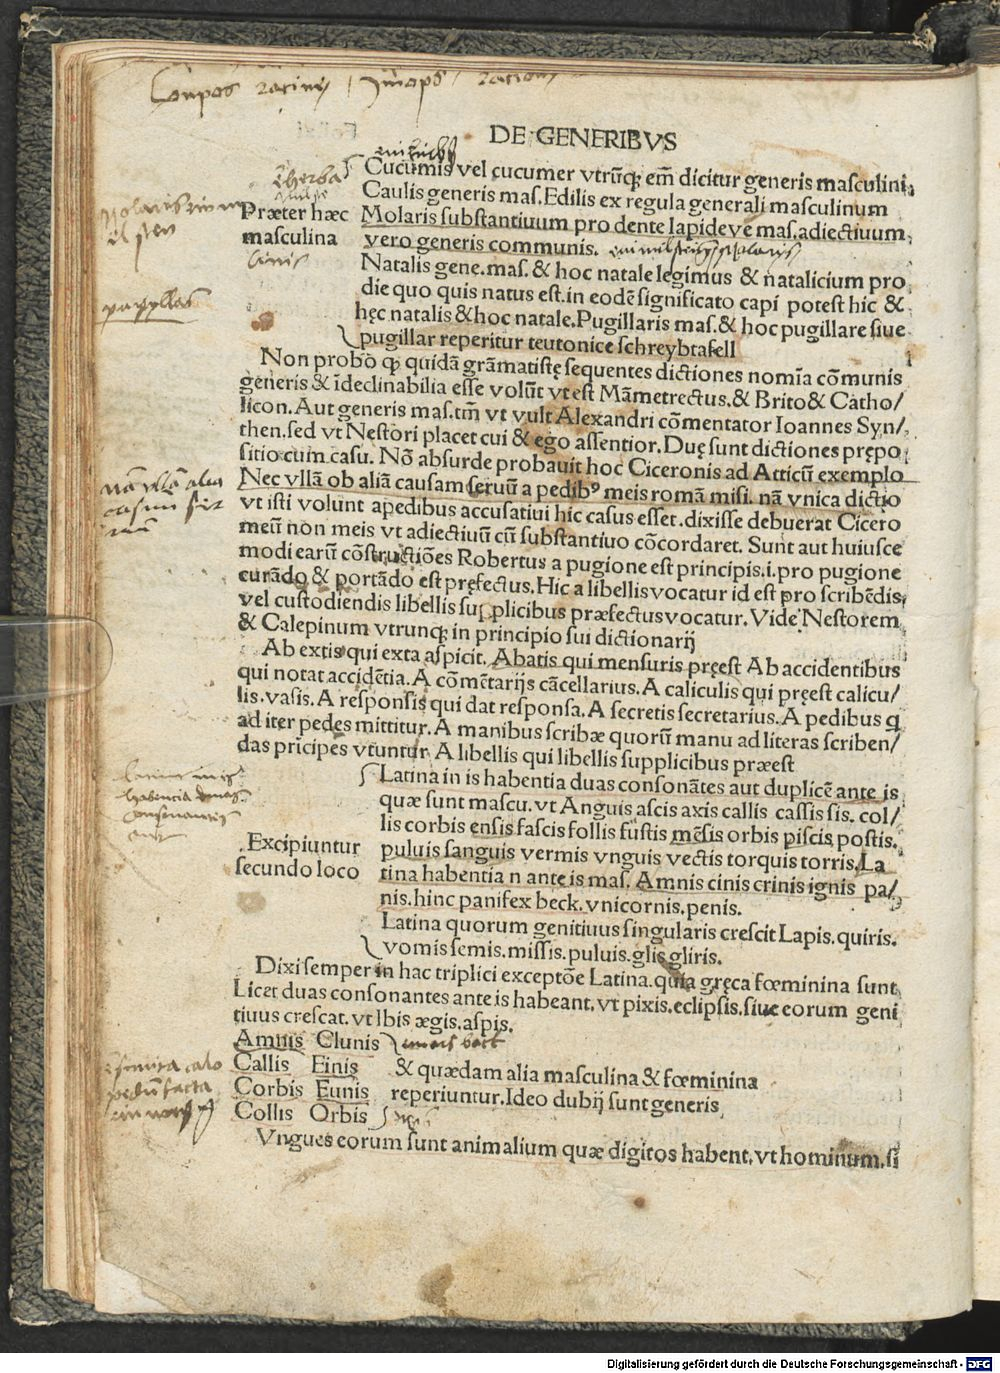 DE GENERIBVS
Cucumis vel cucumer vtrūq; em̄ dicitur generis masculini.
Caulis generis mas. Edilis ex regula generali masculinum
Præter hæc
masculina
Molaris substantiuum pro dente lapideve mas. adiectiuum
vero generis communis.
Natalis gene. mas. & hoc natale legimus & natalicium pro
die quo quis natus est. in eodē significato capi potest hic &
hęc natalis & hoc natale. Pugillaris mas. & hoc pugillare siue
pugillar reperitur teutonice schreybtafell
papyllas
Non probo ꝙ quidā grāmatistę sequentes dictiones nomīa cōmunis
generis & īdeclinabilia esse volūt vt est Māmetrectus. & Brito & Catho/
licon. Aut generis mas. tm̄ vt vult Alexandri cōmentator Ioannes Syn/
then. sed vt Nestori placet cui & ego assentior. Duę sunt dictiones prępo
sitio cum casu. Nō absurde probauit hoc Ciceronis ad Atticū exemplo
Nec vllā ob aliā causam seruū a pedib⁹ meis romā misi. nā vnica dictio
vt isti volunt apedibus accusatiui hic casus esset. dixisse debuerat Cicero
meū non meis vt adiectiuū cū substantiuo cōcordaret. Sunt aut huiusce
modi earū cōstructiōes Robertus a pugione est principis .i. pro pugione
curādo & portādo est pręfectus. Hic a libellis vocatur id est pro scribēdis
vel custodiendis libellis supplicibus præfectus vocatur. Vide Nestorem
& Calepinum vtrunq; in principio sui dictionarij
Ab extis qui exta aspicit. Abatis qui mensuris pręest Ab accidentibus
qui notat accidētia. A cōmētarijs cācellarius. A caliculis qui pręest calicu/
lis. vasis. A responsis qui dat responsa. A secretis secretarius. A pedibus q
ad iter pedes mittitur. A manibus scribæ quorū manu ad literas scriben/
das pricipes vtuntur A libellis qui libellis supplicibus præest
Latina in is habentia duas consonātes aut duplicē ante is
quæ sunt mascu. vt Anguis ascis axis callis cassis sis. col/
lis corbis ensis fascis follis fustis mēsis orbis piscis postis.
Excipiuntur
secundo loco
puluis sanguis vermis vnguis vectis torquis torris. La
tina habentia n ante is mas. Amnis cinis crinis ignis pa/
nis. hinc panifex beck. vnicornis. penis.
Latina quorum genitiuus singularis crescit Lapis. quiris.
vomis semis. missis. puluis. glis gliris.
Dixi semper in hac triplici exceptōe Latina. quia gręca fœminina sunt
Licet duas consonantes ante is habeant. vt pixis. eclipsis. siue eorum geni
tiuus crescat. vt Ibis ægis. aspis.
Amnis Clunis
Callis Einis & quædam alia masculina & fœminina
Corbis Eunis reperiuntur. Ideo dubij sunt generis
Collis Orbis
Vngues eorum sunt animalium quæ digitos habent. vt hominum. si
Digitalisierung gefördert durch die Deutsche Forschungsgemeinschaft - DFG